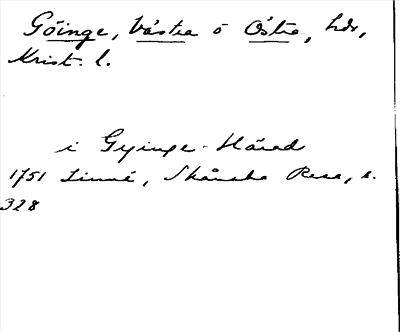 Göinge, Västra o Östra, hdr,
Krist. l.
i Gyinge-Härad
1751 Linné, Skånska Resa, s.
328